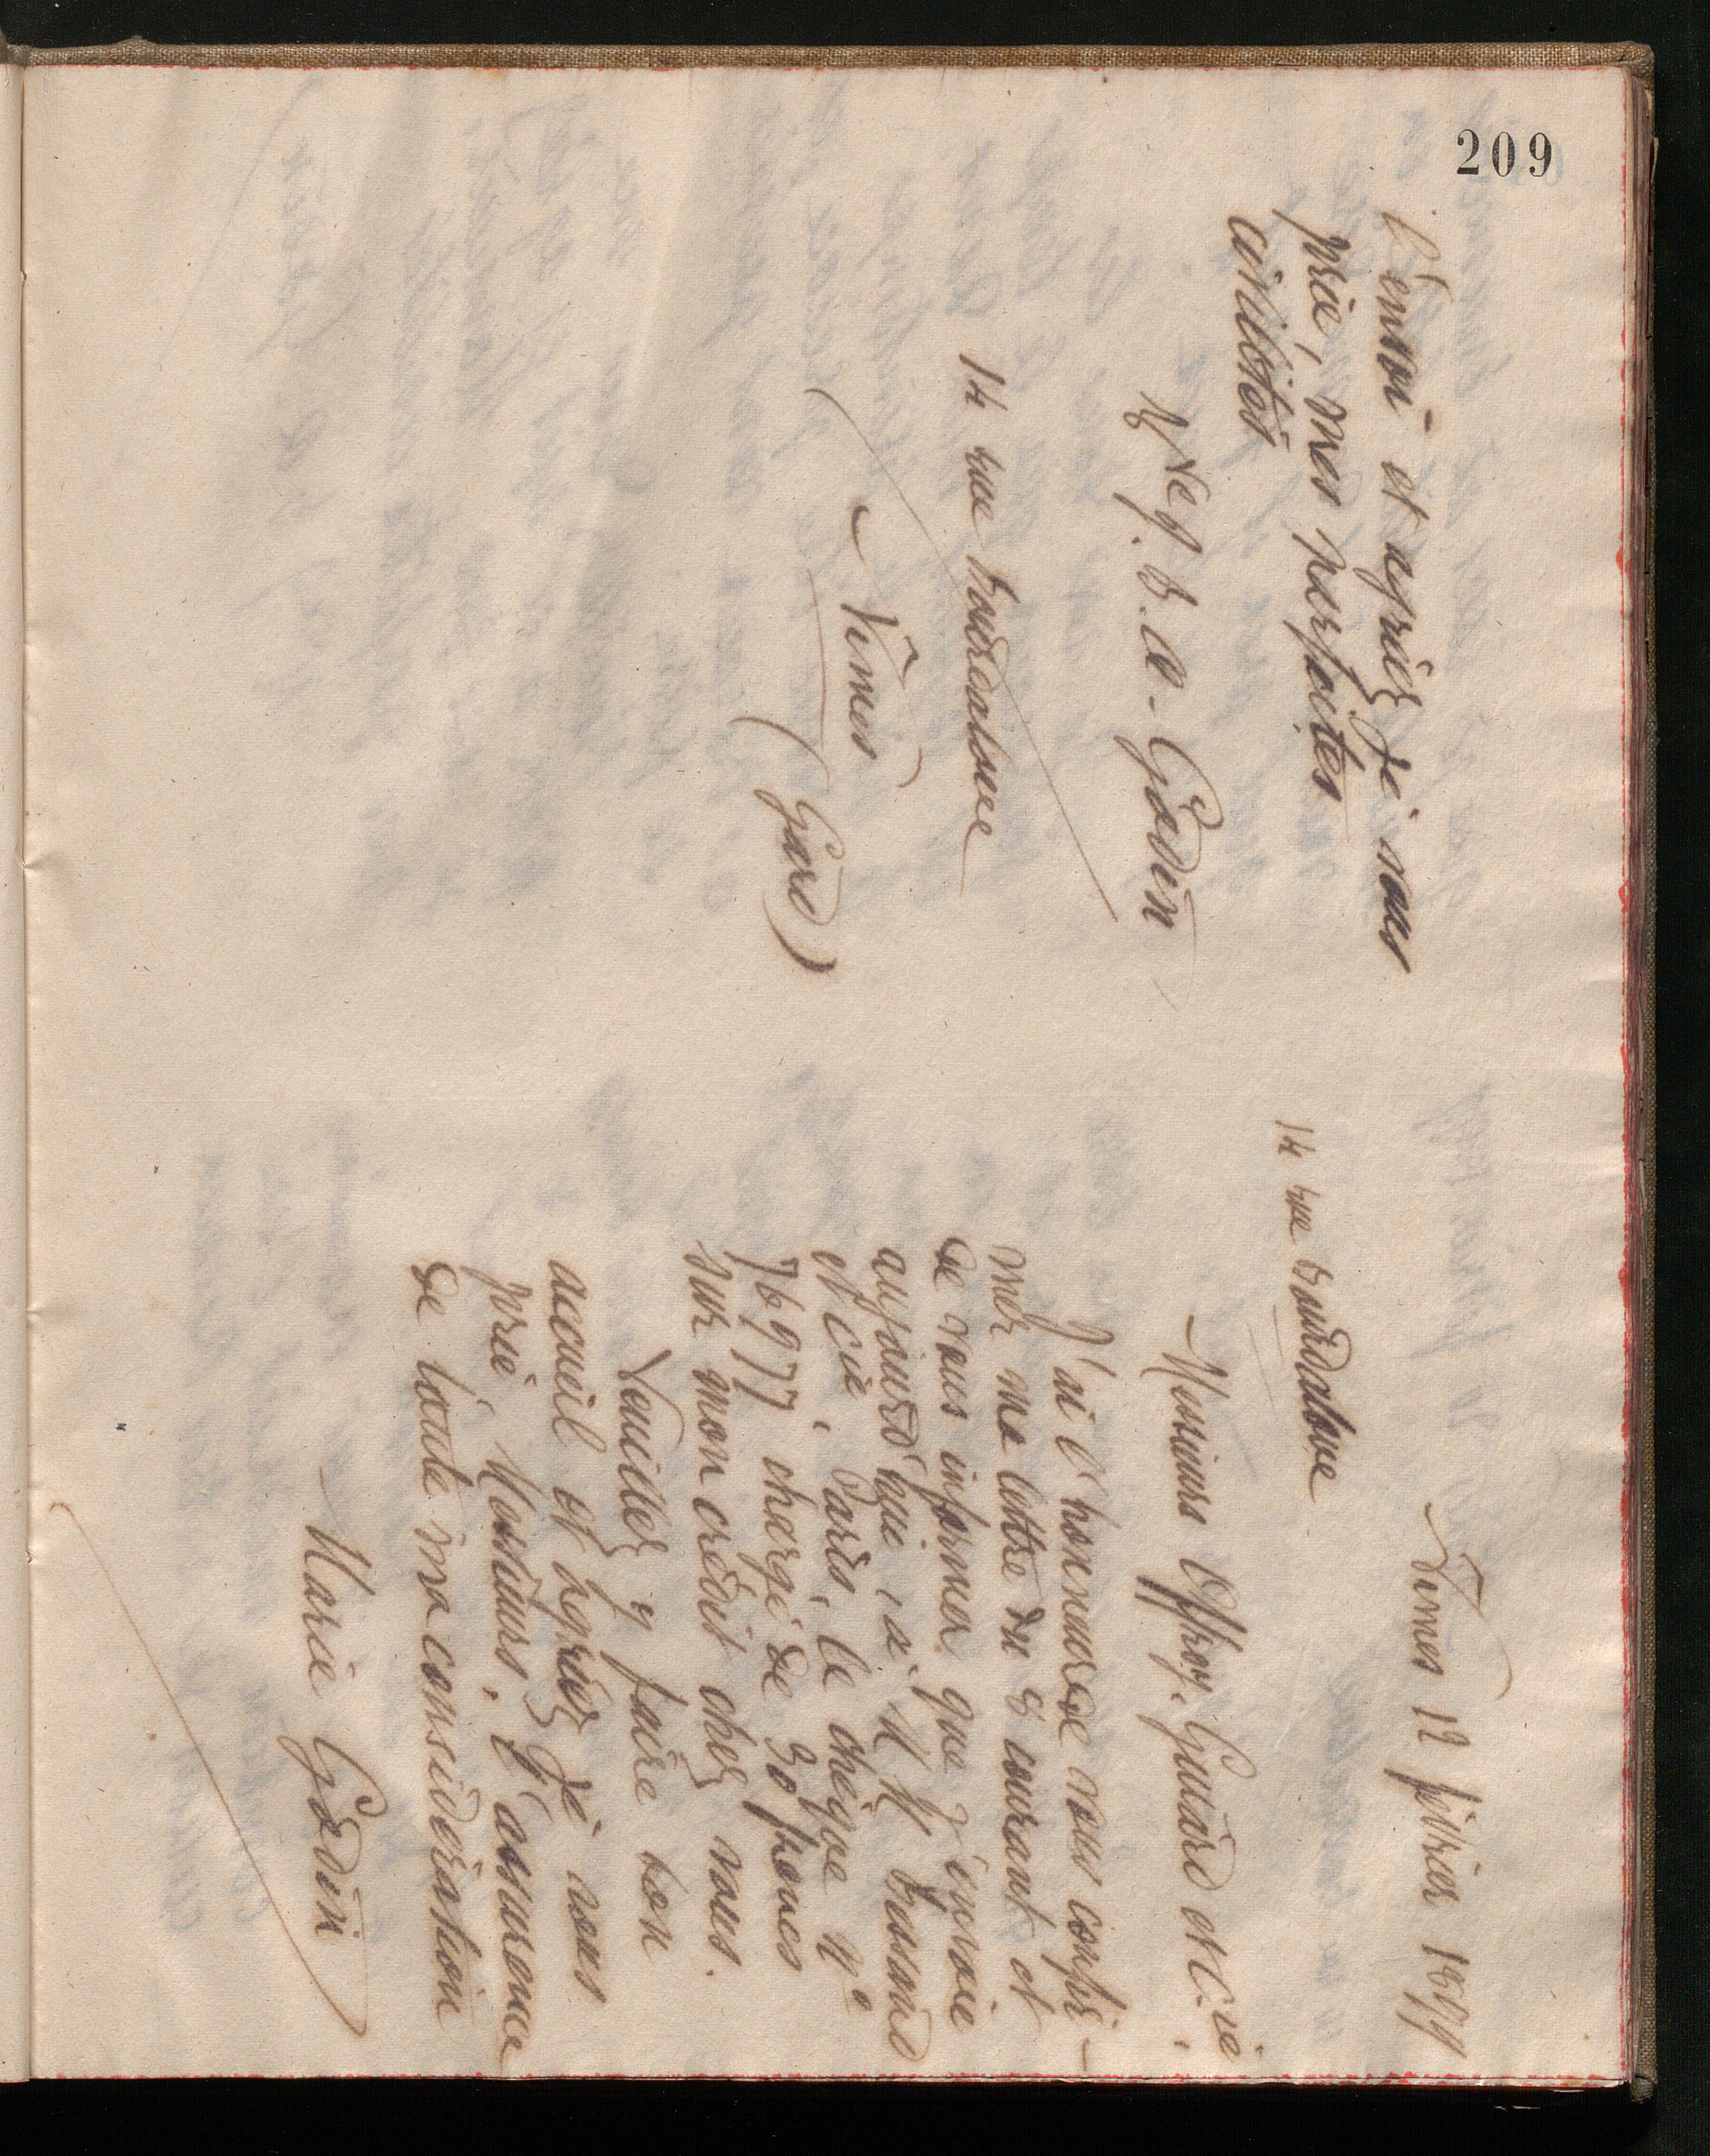 209
l'envoi et agréez je vous
prie, mes parfaites
civilités
Vve J. B. A. Godin
14 rue Bourdaloue
Nîmes
(Gard)
Nîmes 12 février 1899
14 rue Bourdaloue
Messieurs Offroy, Guiard et Cie,
J'ai l'honneur de vous confir-
mer ma lettre du 8 courant et
de vous informer que j'envoie
aujourd'hui, à M M Bussand
et Cie, Paris, le chèque N°
76977 chargé de 30 francs
sur mon crédit chez vous.
Veuillez y faire bon
accueil et agréez je vous
prie, Messieurs, l'assurance
de toute ma considération
Marie Godin